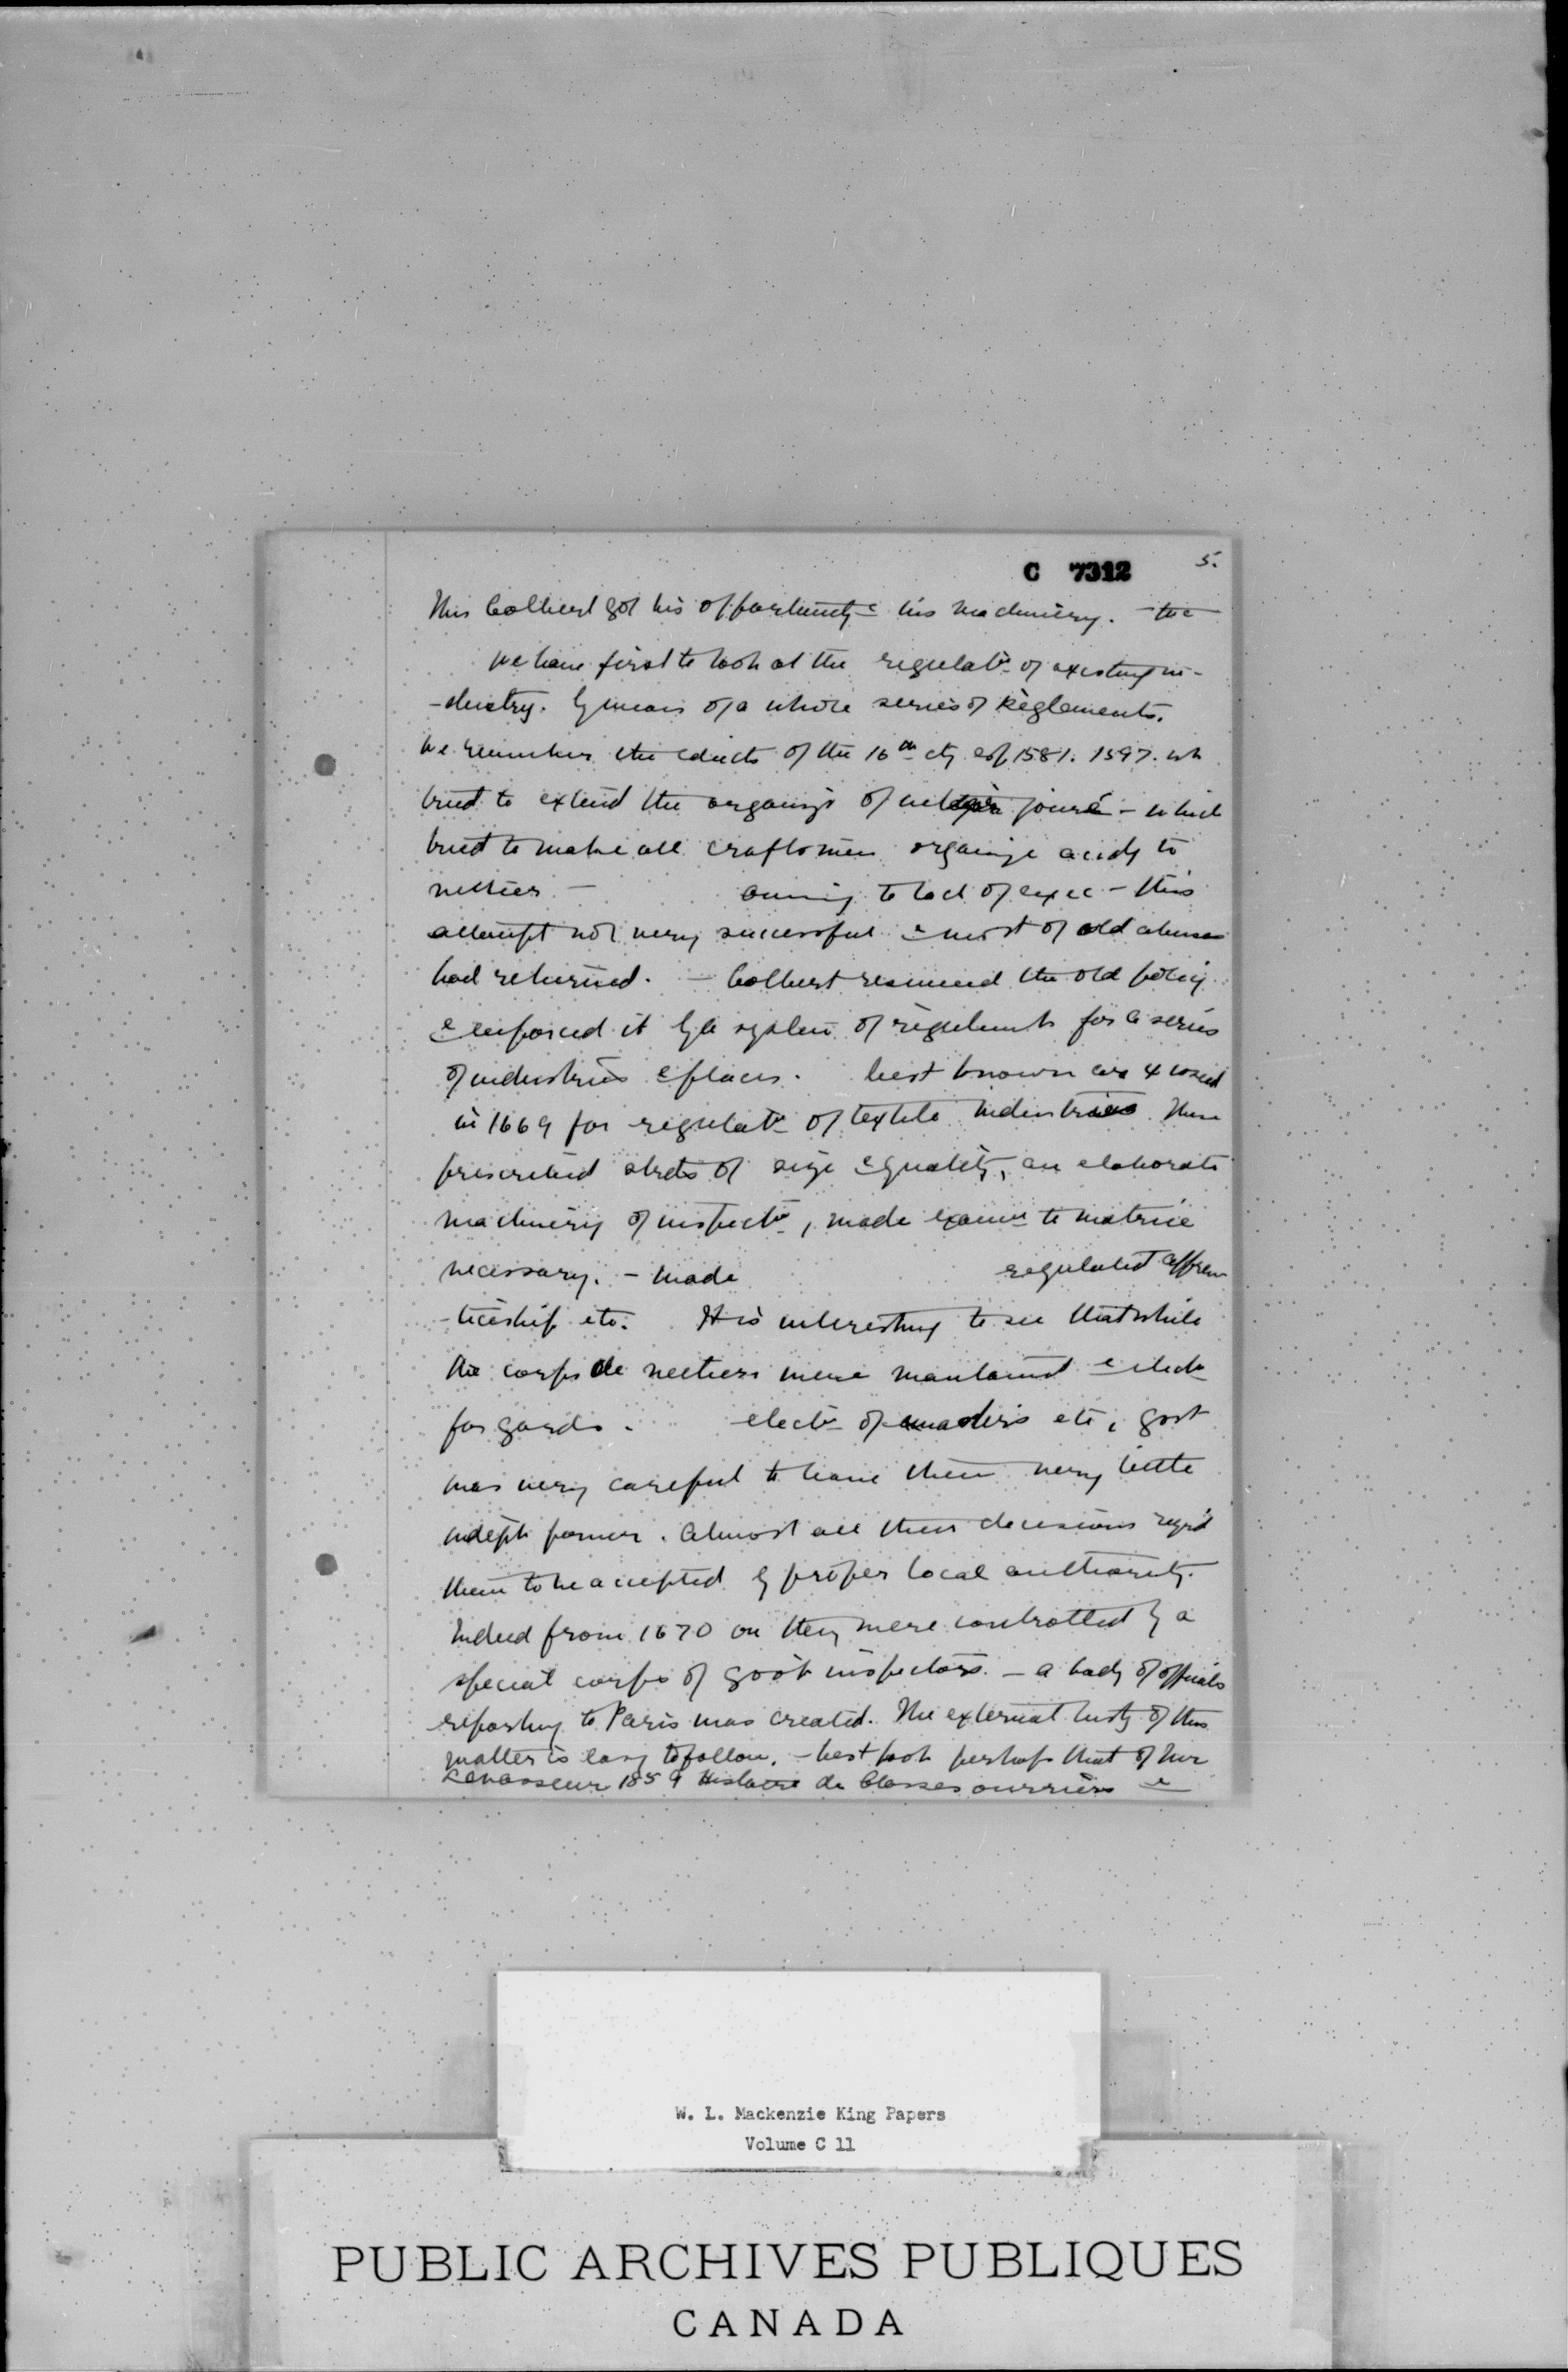 C 7312 5.
This Colbert got his opportunity & his machinery. – the
we have first to look at the regulatn of existing in-
-dustry. by means of a whole series of Règlements.
We remember the edicts of the 16th cty esp 1581. 1597. wh
tried to extend the organizn of métier juré – which
tried to make all craftsmen organize accdg to
metier – owing to lack of exec – this
attempt not very successful & most of old abuses
had returned. – Colbert resumed the old policy
& enforced it by a system of regulemts for a series
of industries & places. best known are 4 issued
in 1669 for regulatn of textile industries. These
prescribed strdts of size & quality, an elaborate
machinery of inspectn, made examn to matrice
necessary. – made regulated appren
-ticeship etc. It is interesting to see that while
the corps de metiers were maintained & elect
for gards. electn of masters etc, govt
was very careful to leave them very little
indept power. Almost all their decisions reqrd
them to be accepted by proper local authority.
Indeed from 1670 on they were controlled by a
special corps of govt inspectors. – a body of officials
reporting to Paris was created. The external histy of this
matter is easy to follow. – best book perhaps that of
Levasseur 1859 Histoire de Classes ouvrières &
W. L. Mackenzie King Papers
Volume C 11
PUBLIC ARCHIVES PUBLIQUES
CANADA